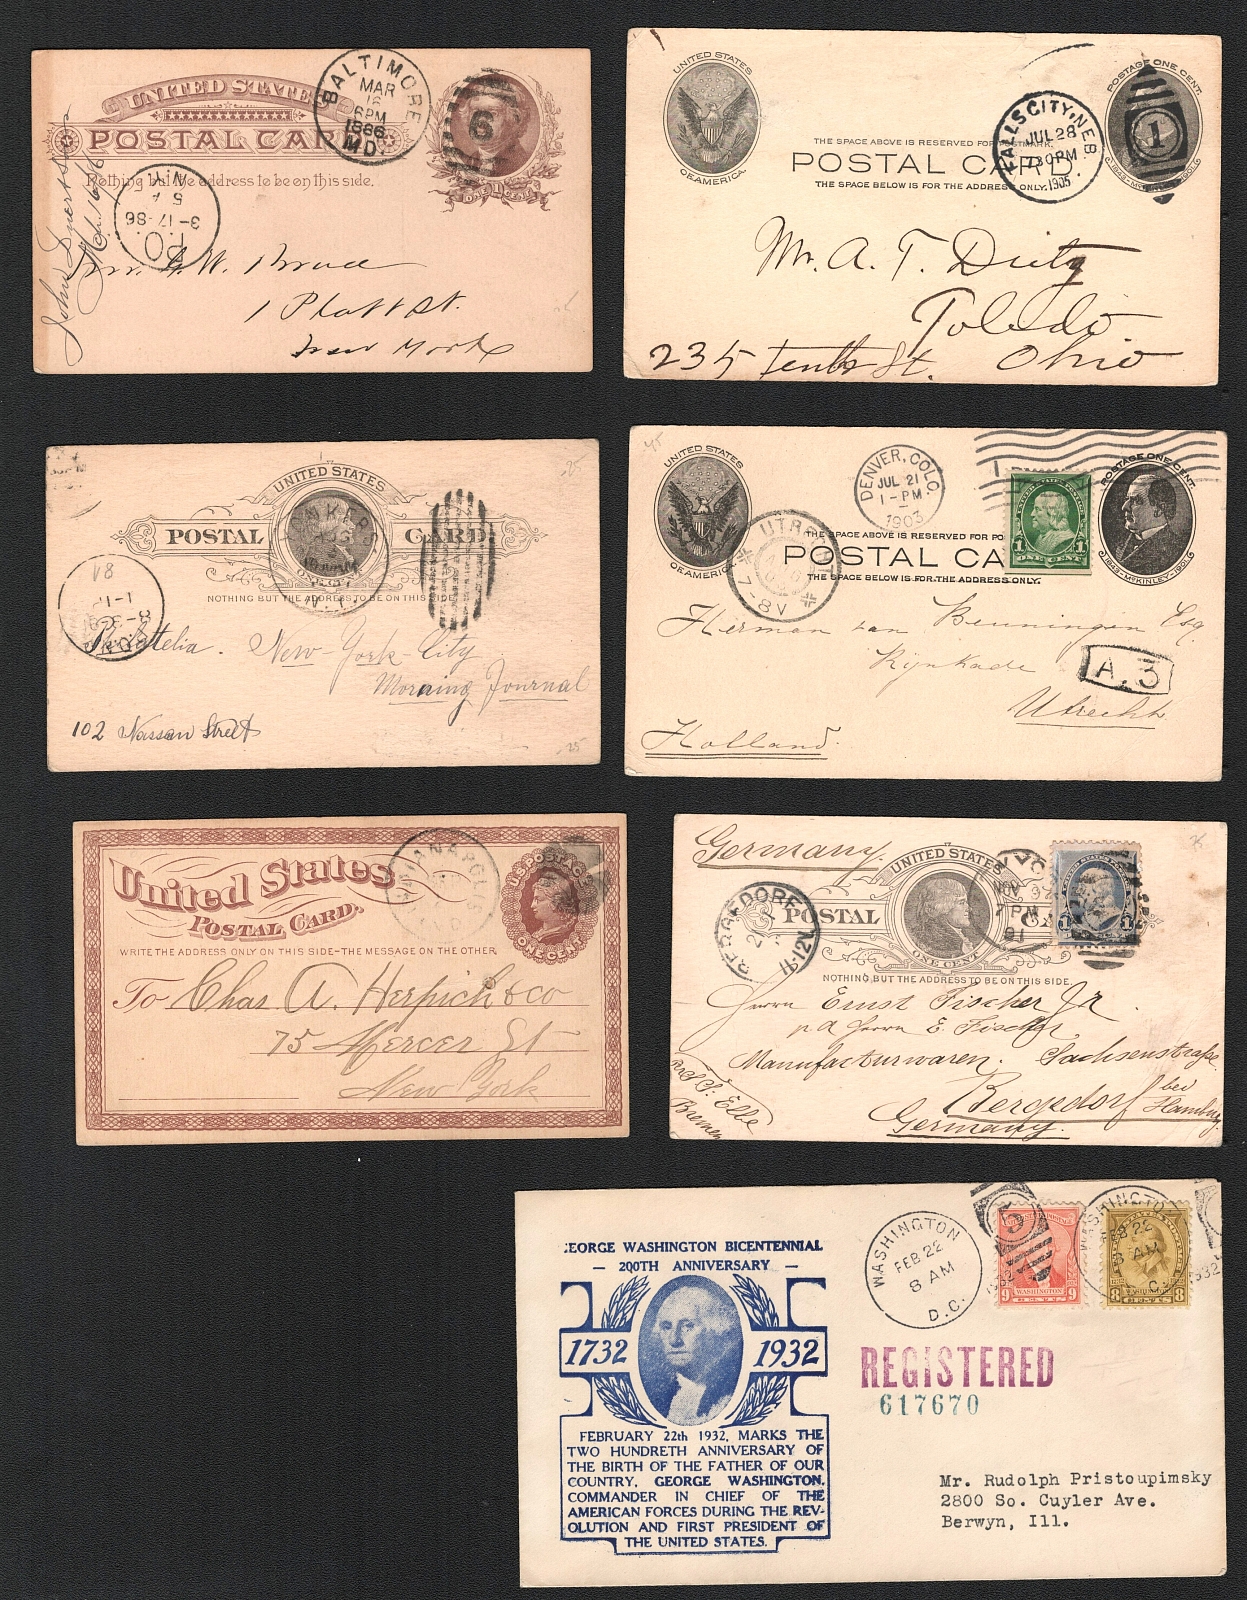 UNITED STATES
POSTAL CARD
Nothing but the address to be on this side.
BALTIMORE
MAR
16
6PM
1886
MD.
6
ONE 1 CENT
N.Y.
5 A
3-17-86
P.O.
G. W. Bruce
1 Platt St.
New York
UNITED STATES
OF AMERICA.
THE SPACE ABOVE IS RESERVED FOR POSTMARK.
POSTAL CARD
THE SPACE BELOW IS FOR THE ADDRESS ONLY.
FALLS CITY, NEB.
JUL 28
730PM
1905
POSTAGE ONE CENT.
1
Mr. A. T. Dietz
Toledo
235 Tenth St. Ohio
UNITED STATES
POSTAL CARD
NOTHING BUT THE ADDRESS TO BE ON THIS SIDE
Philatelia. New-York-City
Morning Journal
102 Nassau Street
25
25
UNITED STATES
OF AMERICA
THE SPACE ABOVE IS RESERVED FOR PO
POSTAL CA
THE SPACE BELOW IS FOR THE ADDRESS ONLY.
DENVER, COLO.
JUL 21
1-PM
1903
UTRECHT
7-8V
ONE CENT
POSTAGE ONE CENT
1843-McKINLEY-1901
Herman van Beuningen Esq
Rijnkade
A. 3
Utrecht
Holland
United States
POSTAL CARD.
WRITE THE ADDRESS ONLY ON THIS SIDE-THE MESSAGE ON THE OTHER
INDIANAPOLIS
U.S. POSTAGE
ONE CENT
To Chas. A. Herpich & co
75 Mercer St
New York
Germany.
UNITED STATES
POSTAL
ONE CENT
NOTHING BUT THE ADDRESS TO BE ON THIS SIDE.
BERGEDORF
11-12V
NOV
7PM
91
Herrn Ernst Fischer Jr
p a Herrn E. Fischer,
Manufacturwaren. Sachsenstrasse
Bergedorf bei Hamburg.
Germany.
S.S. Elbe
Bremen
GEORGE WASHINGTON BICENTENNIAL
— 200TH ANNIVERSARY —
1732 1932
FEBRUARY 22th 1932, MARKS THE
TWO HUNDRETH ANNIVERSARY OF
THE BIRTH OF THE FATHER OF OUR
COUNTRY, GEORGE WASHINGTON,
COMMANDER IN CHIEF OF THE
AMERICAN FORCES DURING THE REV-
OLUTION AND FIRST PRESIDENT OF
THE UNITED STATES.
WASHINGTON
FEB 22
8 AM
D.C.
5
1932
9 WASHINGTON 9
WASHINGTON
FEB 22
8 AM
8 8
1932
REGISTERED
617670
Mr. Rudolph Pristoupimsky
2800 So. Cuyler Ave.
Berwyn, Ill.